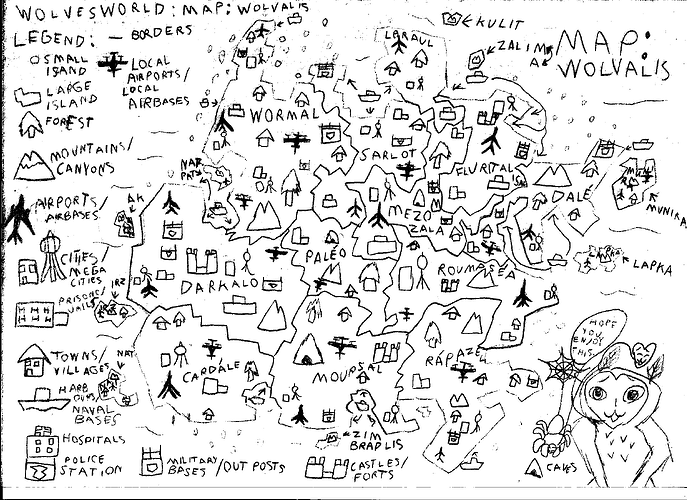 WOLVESWORLD: MAP: WOLVALIS
LEGEND: — BORDERS
SMALL ISLAND
LOCAL AIRPORTS/ LOCAL AIRBASES
LARGE ISLAND
FOREST
MOUNTAINS/ CANYONS
AIRPORTS/ AIRBASES
CITIES/ MEGA CITIES
PRISONS/
TOWNS/ VILLAGES
NAVAL BASES
HOSPITALS
POLICE STATION
MILITARY BASES/OUT POSTS
CASTLES/ FORTS
CAVES
MAP:
WOLVALIS
KULIT
LORAUL
WORMAL
SARLOT
FLURITAL
DALÉ
MUNIKA
LAPKA
MEZO ZALA
AK
IRZ
NAT
DARKALO
PALÉO
ROUMASEA
CARDALE
MOURSAL
RAPAZEL
ZIM BRAPLIS
HOPE YOU ENJOY THIS